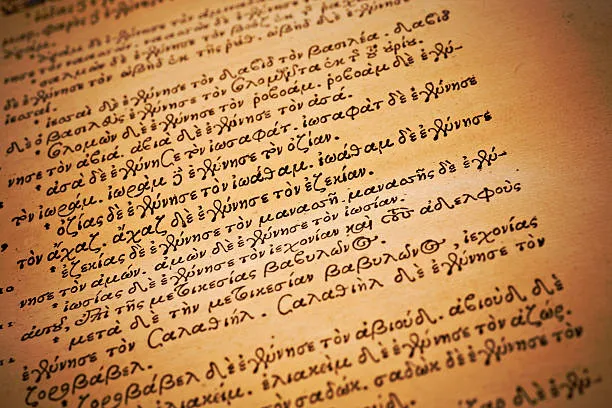 νησε τὸν ὠβὴδ ἐκ τῆς ῥούθ. ὠβὴδ δὲ ἐγέννησε
δὲ ἐγέννησε τὸν δαβὶδ τὸν βασιλέα. δαβὶδ
ἰεσσαί. ἰεσσαὶ
δὲ ὁ βασιλεὺς ἐγέννησε τὸν σολομῶντα ἐκ τῆς τοῦ οὐρίου.
σολομὼν δὲ ἐγέννησε τὸν ῥοβοάμ. ῥοβοὰμ δὲ ἐγέν-
νησε τὸν ἀβιά. ἀβιὰ δὲ ἐγέννησε τὸν ἀσά.
ἀσὰ δὲ ἐγέννησε τὸν ἰωσαφάτ. ἰωσαφὰτ δὲ ἐγέννησε
τὸν ἰωράμ. ἰωρὰμ δὲ ἐγέννησε τὸν ὀζίαν.
ὀζίας δὲ ἐγέννησε τὸν ἰωάθαμ. ἰωάθαμ δὲ ἐγέννησε
τὸν ἄχαζ. ἄχαζ δὲ ἐγέννησε τὸν ἐζεκίαν.
ἐζεκίας δὲ ἐγέννησε τὸν μανασσῆ. μανασσῆς δὲ ἐγέν-
νησε τὸν ἀμών. ἀμὼν δὲ ἐγέννησε τὸν ἰωσίαν.
ἰωσίας δὲ ἐγέννησε τὸν ἰεχονίαν καὶ τοὺς ἀδελφοὺς
αὐτοῦ, ἐπὶ τῆς μετοικεσίας βαβυλῶνος.
μετὰ δὲ τὴν μετοικεσίαν βαβυλῶνος, ἰεχονίας
ἐγέννησε τὸν σαλαθιήλ. σαλαθιὴλ δὲ ἐγέννησε τὸν
ζοροβάβελ.
ζοροβάβελ δὲ ἐγέννησε τὸν ἀβιούδ. ἀβιοὺδ δὲ
ἐλιακείμ. ἐλιακεὶμ δὲ ἐγέννησε τὸν ἀζώρ.
τὸν σαδώκ. σαδὼκ δὲ ἐγέννησε